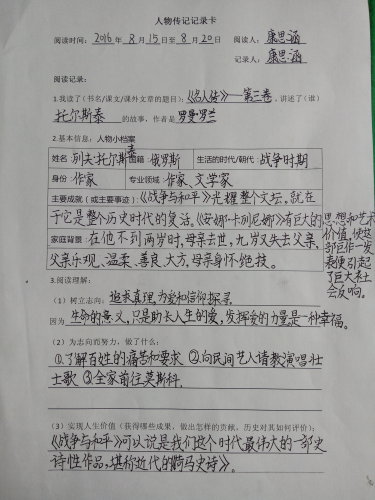 人物传记记录卡
阅读时间：2016年8月15日至8月20日 阅读人：康思涵
记录人：康思涵
阅读记录：
1.我读了（书名/课文/课外文章的题目）：《名人传》——第三卷，讲述了（谁）
托尔斯泰 的故事，作者是 罗曼·罗兰
2.基本信息：人物小档案
姓名：列夫·托尔斯泰 国籍：俄罗斯 生活的时代/朝代：战争时期
身份：作家 专业领域：作家、文学家
主要成就（或主要事迹）：《战争与和平》光耀整个文坛，就在
于它是整个历史时代的复活。《安娜·卡列尼娜》有巨大的思想和艺术
价值，使这部巨作一发表便引起了巨大社会反响。
家庭背景：在他不到两岁时，母亲去世，九岁又失去父亲，
父亲乐观、温柔、善良、大方，母亲身怀绝技。
3.阅读理解：
（1）树立志向：追求真理，为爱和信仰探寻
因为 生命的意义，只是助长人生的爱，发挥爱的力量是一种幸福。
（2）为志向而努力，做了什么：
①了解百姓的痛苦和要求 ②向民间艺人请教演唱壮
士歌 ③全家前往莫斯科.
（3）实现人生价值（获得哪些成果，做出怎样的贡献，历史对其如何评价）：
《战争与和平》可以说是我们这个时代最伟大的一部史
诗性作品，堪称近代的《荷马史诗》。